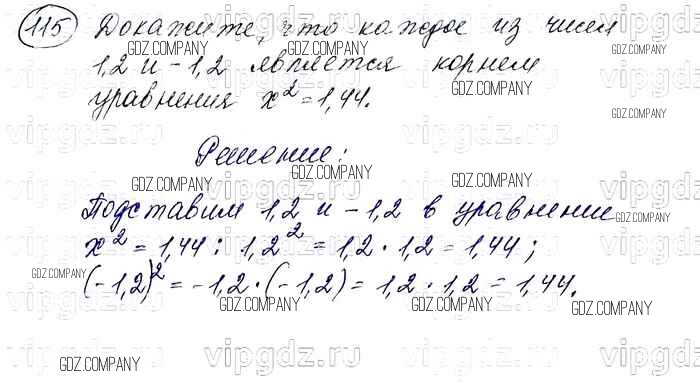 115 Докажите, что каждое из чисел
1,2 и -1,2 является корнем
уравнения x² = 1,44.
Решение:
Подставим 1,2 и -1,2 в уравнение
x² = 1,44: 1,2² = 1,2 · 1,2 = 1,44;
(-1,2)² = -1,2 · (-1,2) = 1,2 · 1,2 = 1,44.